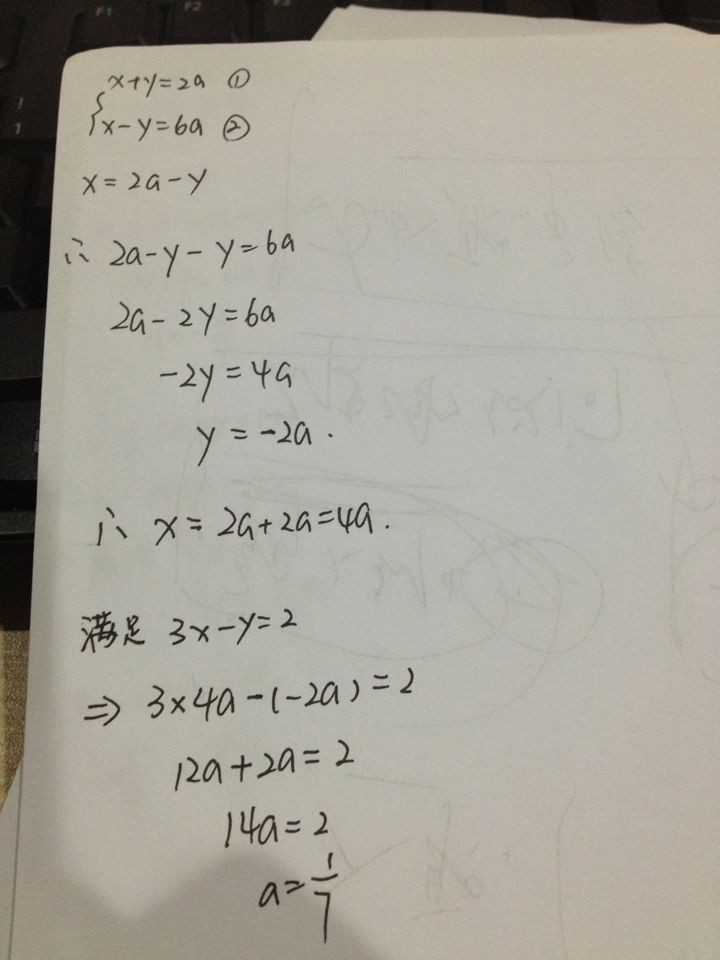 F1
F2
F3
!
1
x+y=2a ①
x-y=6a ②
x=2a-y
∴ 2a-y-y=6a
2a-2y=6a
-2y=4a
y=-2a.
∴ x=2a+2a=4a.
满足 3x-y=2
⇒ 3×4a-(-2a)=2
12a+2a=2
14a=2
a=1/7